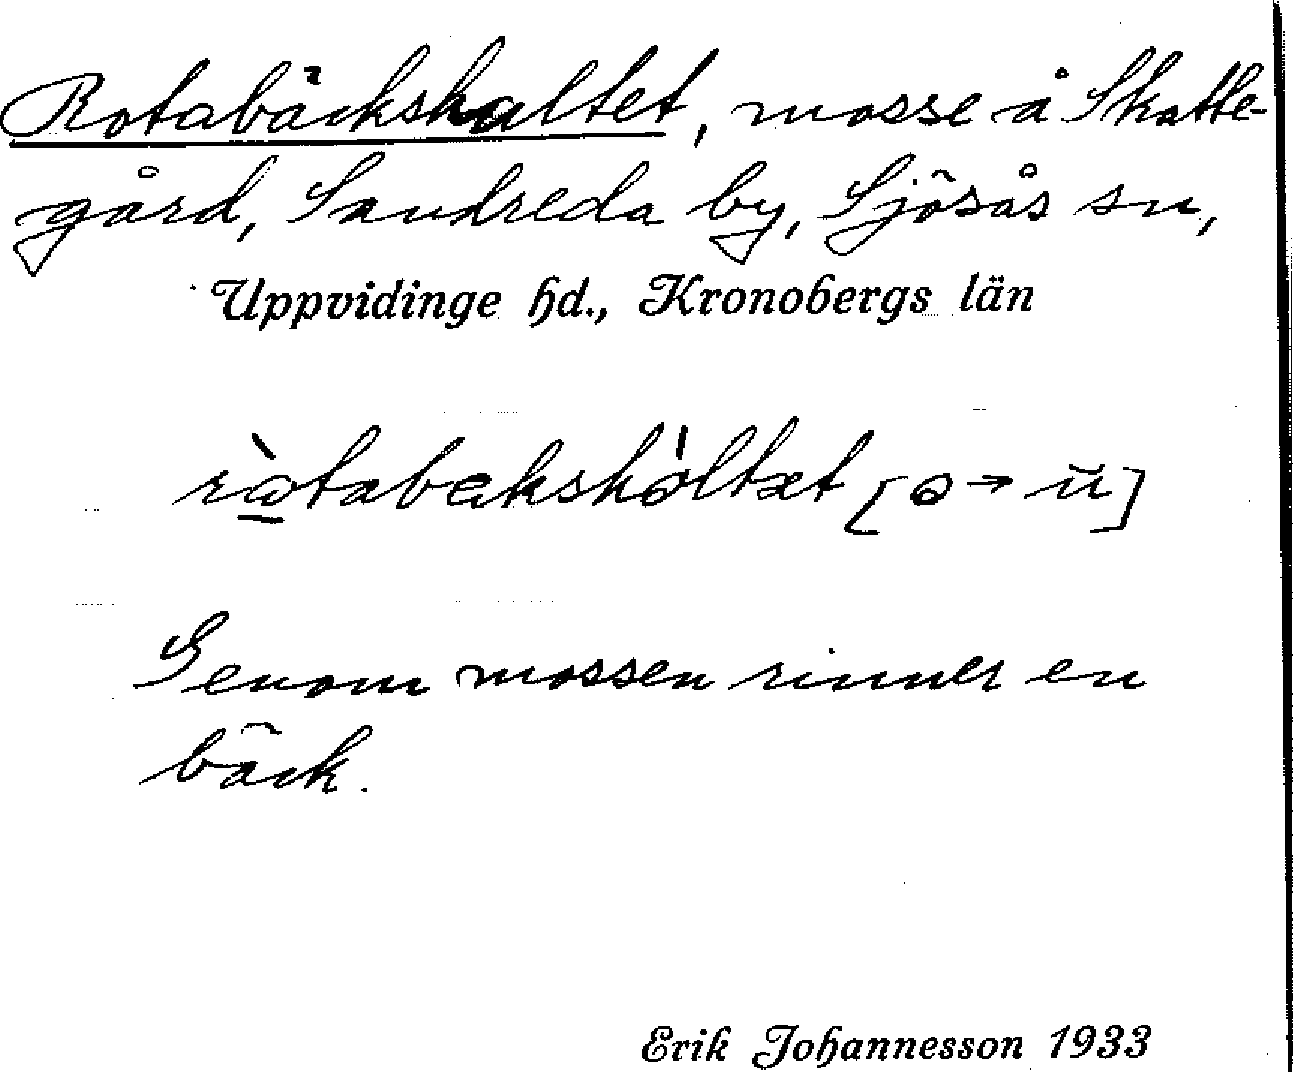 Rotabäckshultet, mosse å Skatte-
gård, Sandreda by, Sjösås sn,
Uppvidinge hd., Kronobergs län
[ → ]
Genom mossen rinner en
bäck.
Erik Johannesson 1933